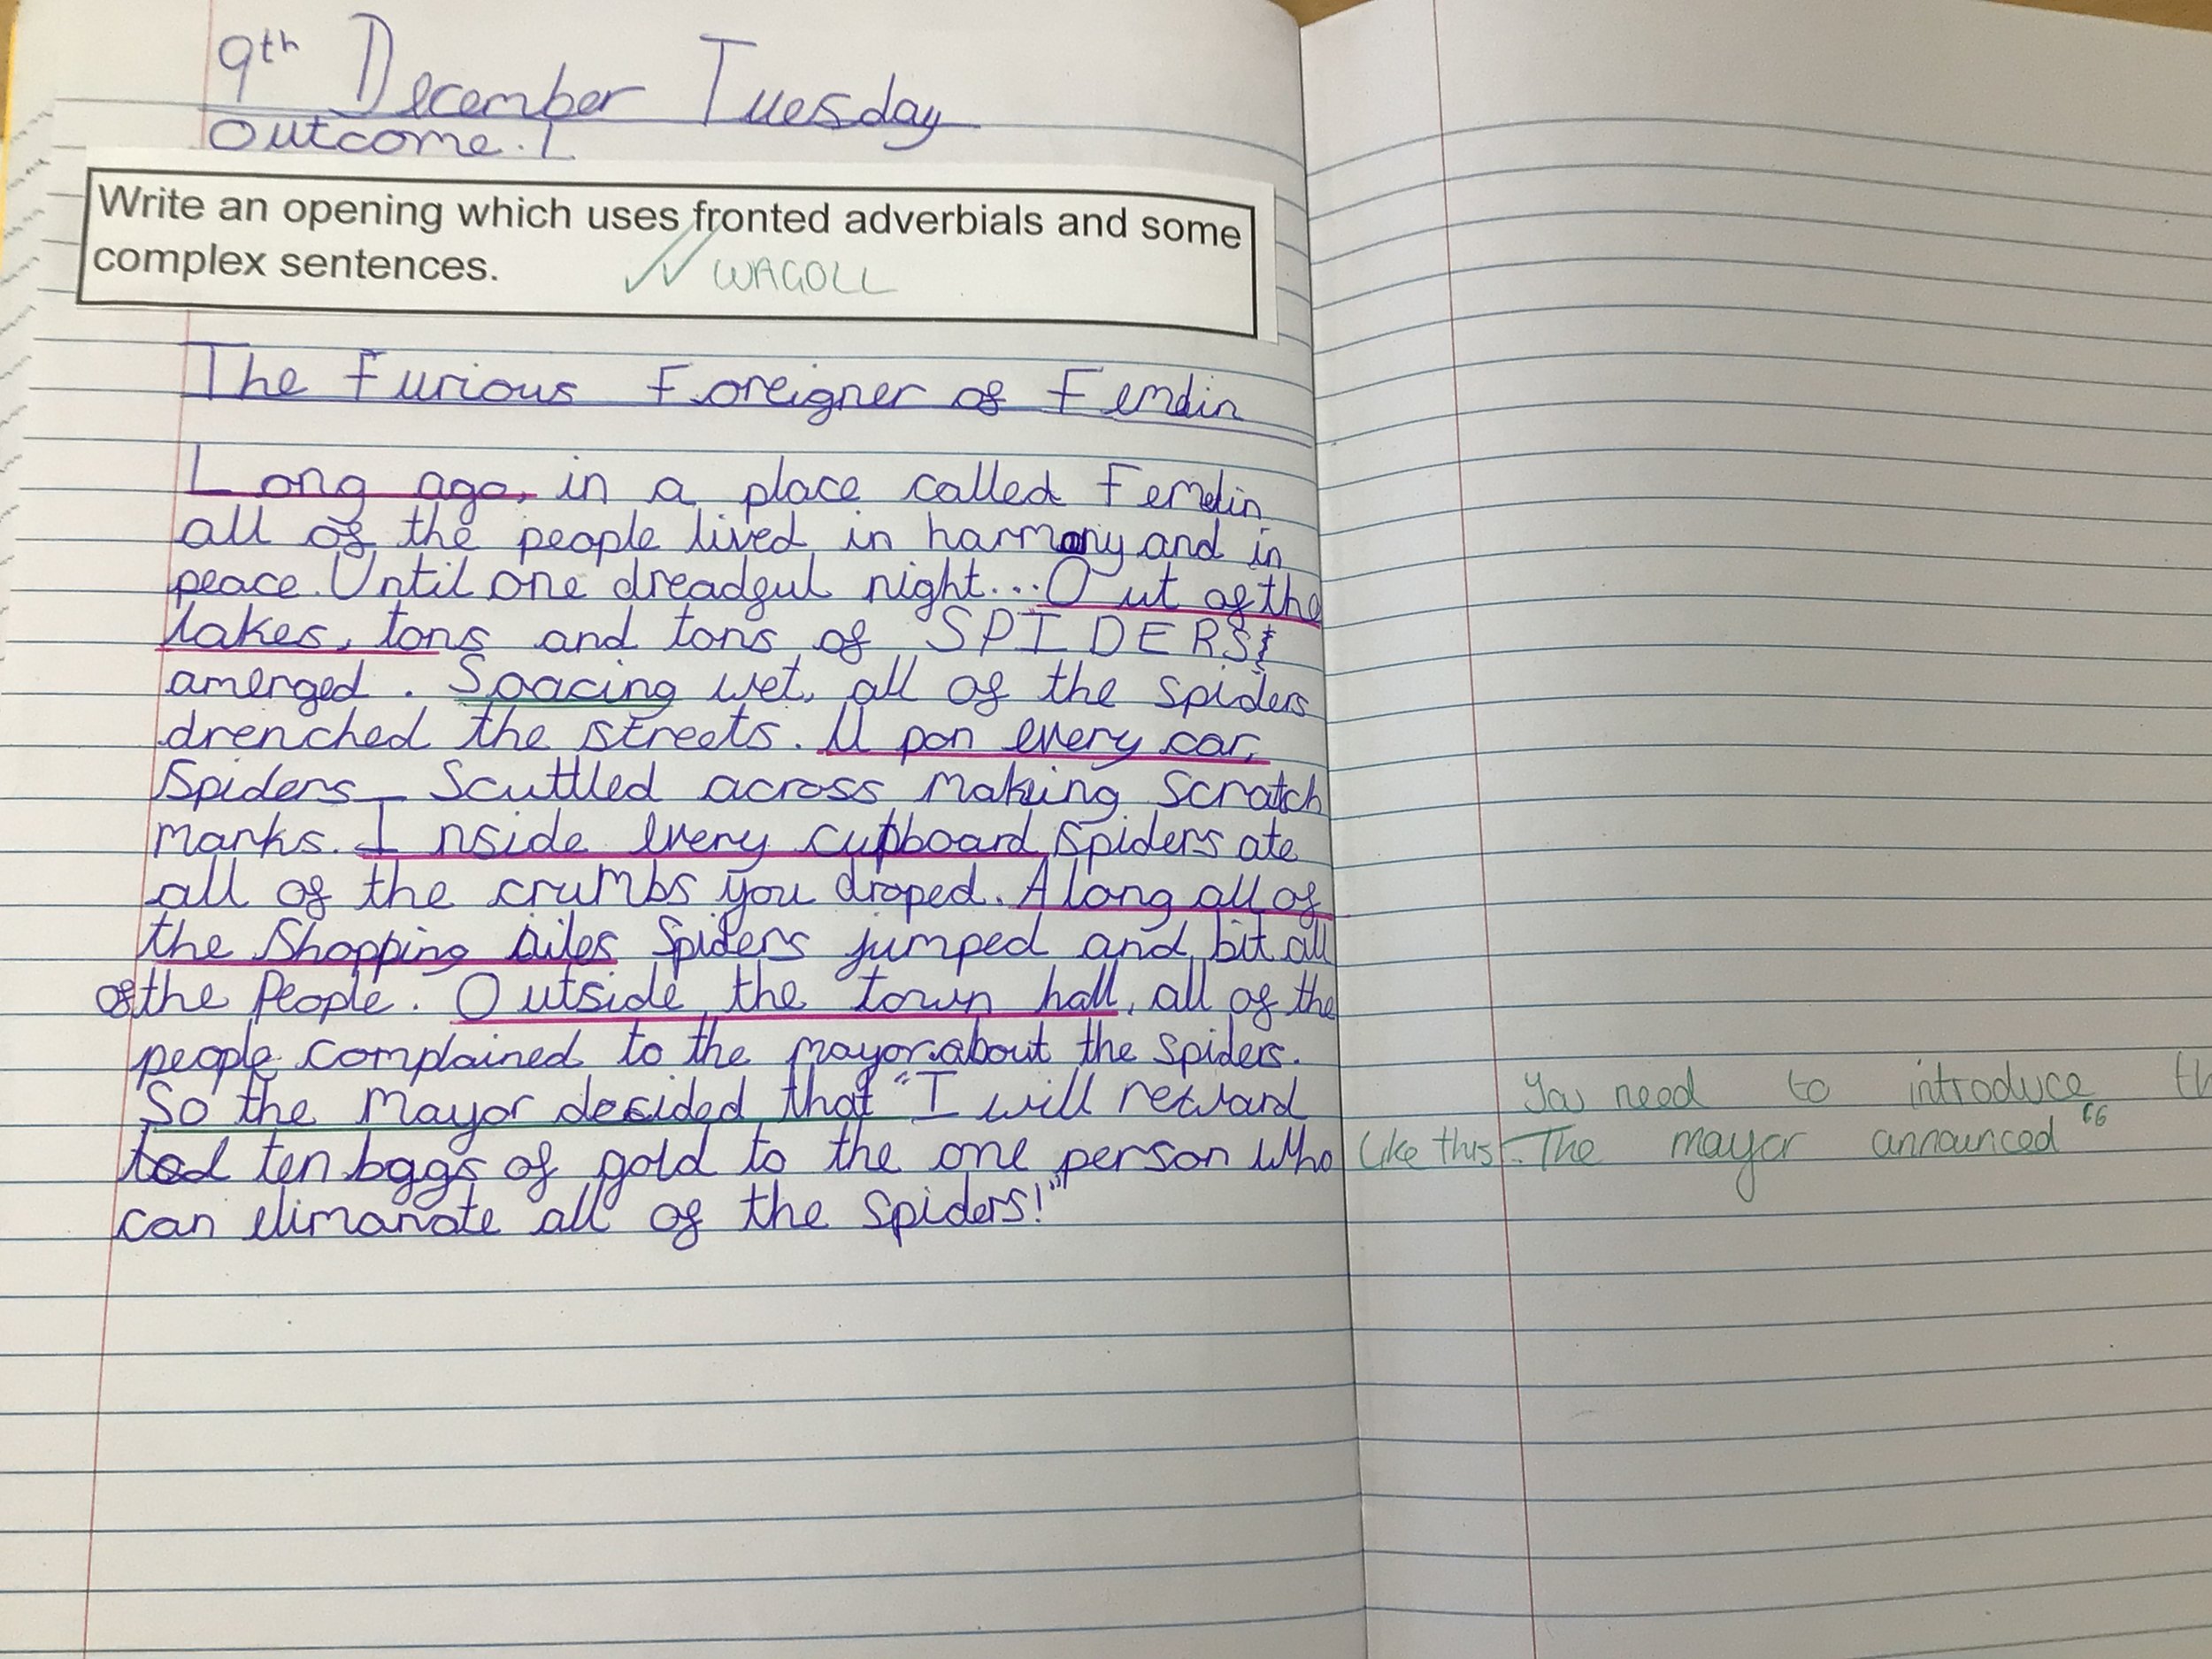 9th December Tuesday
Outcome.1
Write an opening which uses fronted adverbials and some
complex sentences.
WAGOLL
The Furious Foreigner of Femdin
Long ago, in a place called Femdin
all of the people lived in harmony and in
peace. Until one dreadful night... Out of the
lakes, tons and tons of SPIDERS
amerged. Soacing wet, all of the spiders
drenched the streets. Upon every car,
Spiders Scuttled across making scratch
marks. Inside every cupboard Spiders ate
all of the crumbs you droped. Along all of
the Shopping ailes Spiders jumped and bit all
of the People. Outside the town hall, all of the
people complained to the mayor about the spiders.
So the Mayor decided that "I will reward
ten baggs of gold to the one person who
can elimanate all of the spiders!"
You need to introduce th
like this. The mayor announced "